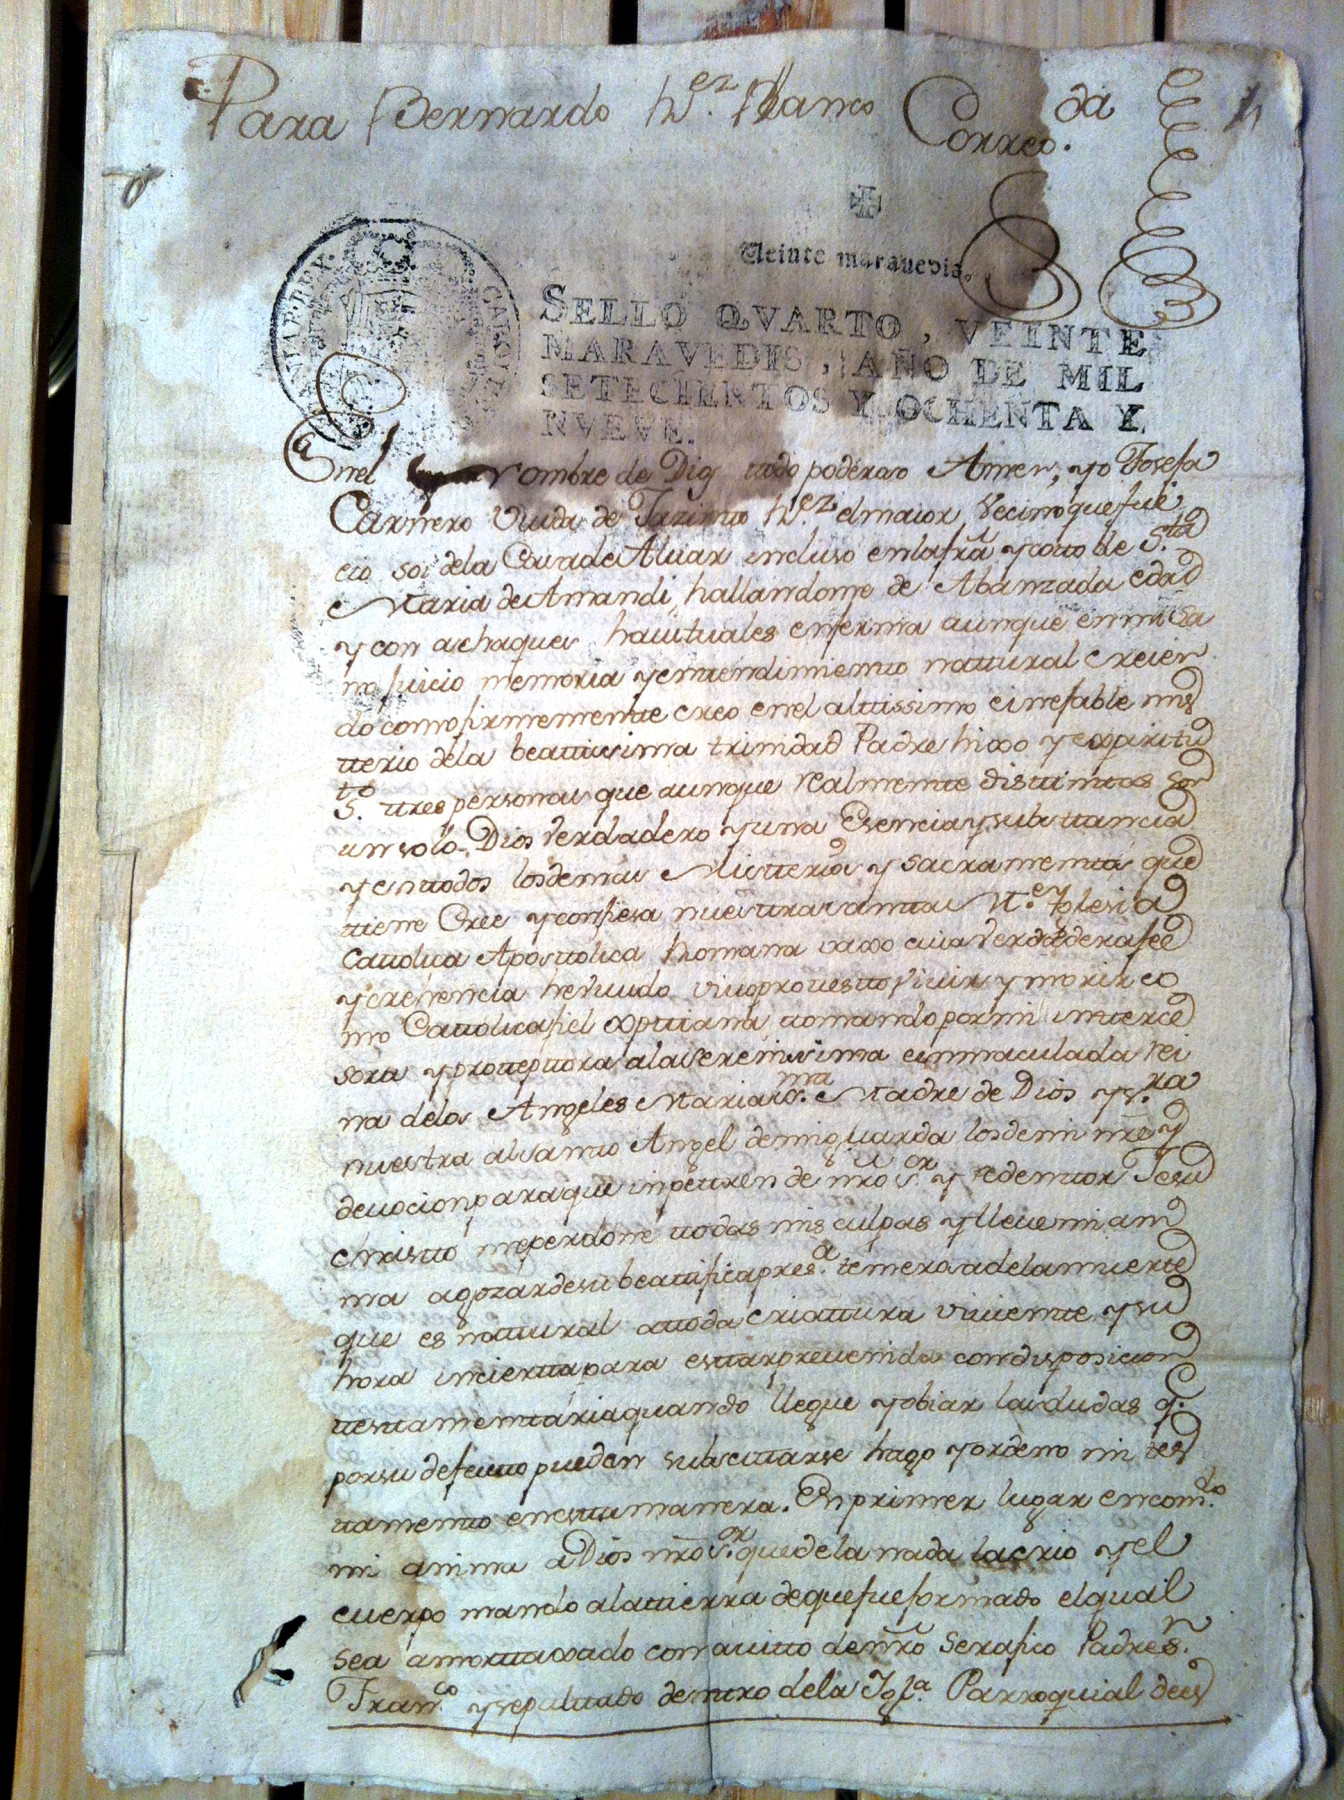 Para Bernardo hez. Blanco Correda.
Veinte maravedis.
SELLO QVARTO, VEINTE
MARAVEDIS, AÑO DE MIL
SETECIENTOS Y OCHENTA Y
NVEVE.
Enel Nombre de Dios ttodo poderoso Amen, yo Josefa
Carnero Viuda de hez. el maior Vecino que fue
cio soi dela Casa de Aluar incluso en la fra y cotto de Sta
Maria de Amandi, hallandome de Abanzada edad
y con achaques hauituales enferma aunque en mi sa
no juicio memoria y entendimiento nattural creien
do como firmemente creo en el alttissimo e inefable mis
tterio dela beattissima trinidad Padre hixo y expiritu
Sto. ttres personas que aunque realmente disttinttas son
un solo Dios Verdadero y una Esencia y substtancia
y en ttodos los demas Mistterios y sacramentos que
tiene Cree y confiesa nuestra santta Me. Yglesia
Cattolica Aposttolica Romana vaxo cuia Verdadera fee
y crehencia he viuido, viuo protesto viuir y morir co
mo Cattolica fiel xpttiana, ttomando por mi intterce
sora y protteçttora ala serenissima e inmaculada rei
na delos Angeles Maria ssma. Madre de Dios y sra
nuestra al santto Angel de mi guarda los de mi nre y
deuocion para que inpettren de nro sor y redemttor Jesu
christto me perdone ttodas mis culpas y lleue mi am
ma a gozar de su beattifica presa. temerosa dela muerte
que es nattural a ttoda criattura viuiente y su
hora incierta para esttar preuenida con disposicion
testamenttaria quando llegue y obiar las dudas q.
por su defectto pueden subscittarse hago y ordeno mi tes
tamento en esta manera. En primer lugar encomdo.
mi anima a Dios nro sor que dela nada la crio y el
cuerpo mando ala ttierra de que fue formado el qual
sea amorttaxado con auitto de nro Serafico Padre Sn.
Franco. y sepulttado dentro dela Ygla. Parroquial de es